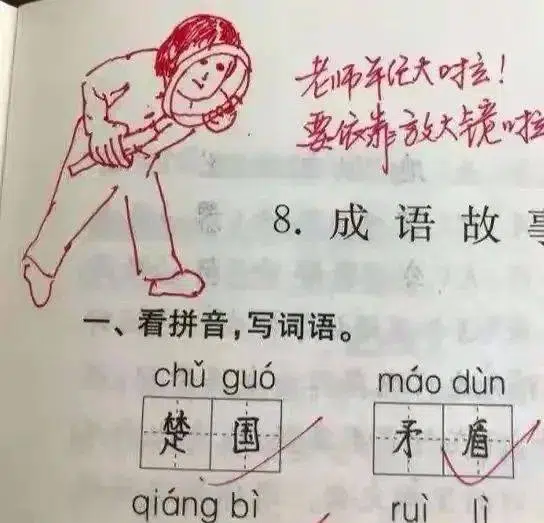 老师年纪大啦！
要依靠放大镜啦
8. 成语故事
一、看拼音，写词语。
chǔ guó máo dùn
楚国 矛盾
qiáng bì ruì lì